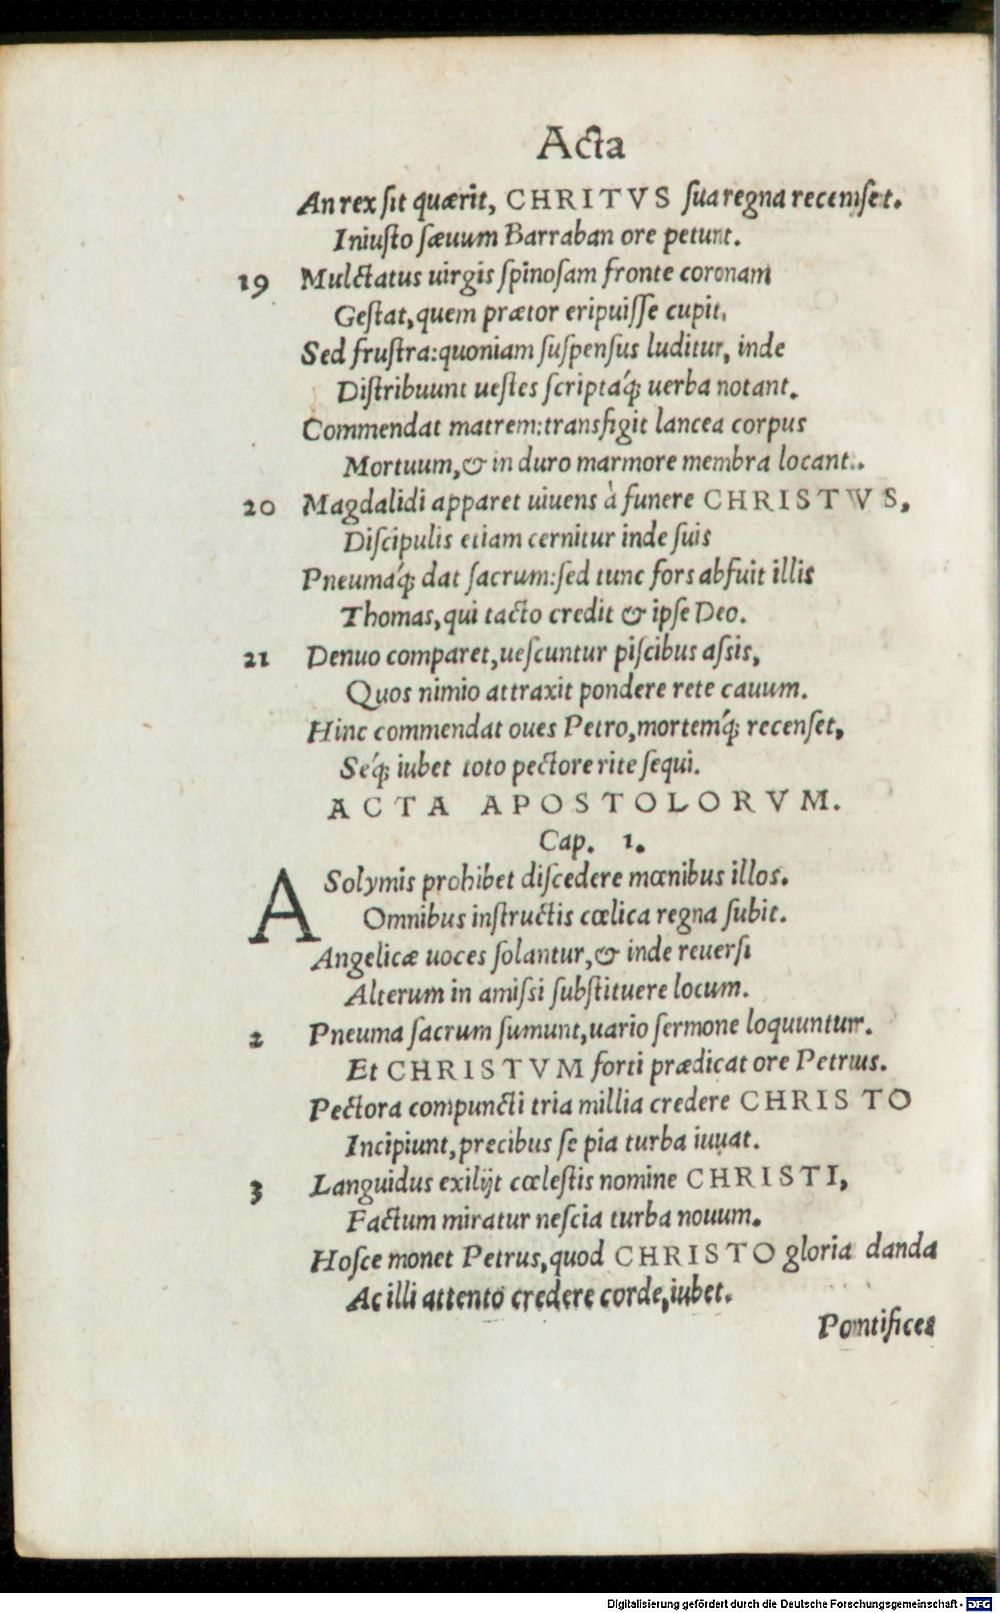 Acta
An rex ſit quærit, CHRITVS ſua regna recenſet.
Iniuſto ſæuum Barraban ore petunt.
19 Mulctatus uirgis ſpinoſam fronte coronam
Geſtat, quem prætor eripuiſſe cupit,
Sed fruſtra: quoniam ſuſpenſus luditur, inde
Diſtribuunt ueſtes ſcriptaq́; uerba notant.
Commendat matrem: transfigit lancea corpus
Mortuum, & in duro marmore membra locant.
20 Magdalidi apparet uiuens à funere CHRISTVS,
Diſcipulis etiam cernitur inde ſuis
Pneumaq́; dat ſacrum: ſed tunc fors abfuit illis
Thomas, qui tacto credit & ipſe Deo.
21 Denuo comparet, ueſcuntur piſcibus aſsis,
Quos nimio attraxit pondere rete cauum.
Hinc commendat oues Petro, mortemq́; recenſet,
Seq́; iubet toto pectore rite ſequi.
ACTA APOSTOLORVM.
Cap. 1.
A Solymis prohibet diſcedere mœnibus illos.
Omnibus inſtructis cœlica regna ſubit.
Angelicæ uoces ſolantur, & inde reuerſi
Alterum in amiſsi ſubſtituere locum.
2 Pneuma ſacrum ſumunt, uario ſermone loquuntur.
Et CHRISTVM forti prædicat ore Petrus.
Pectora compuncti tria millia credere CHRISTO
Incipiunt, precibus ſe pia turba iuuat.
3 Languidus exilijt cœleſtis nomine CHRISTI,
Factum miratur neſcia turba nouum.
Hoſce monet Petrus, quod CHRISTO gloria danda
Ac illi attento credere corde, iubet.
Pontifices
Digitalisierung gefördert durch die Deutsche Forschungsgemeinschaft - DFG